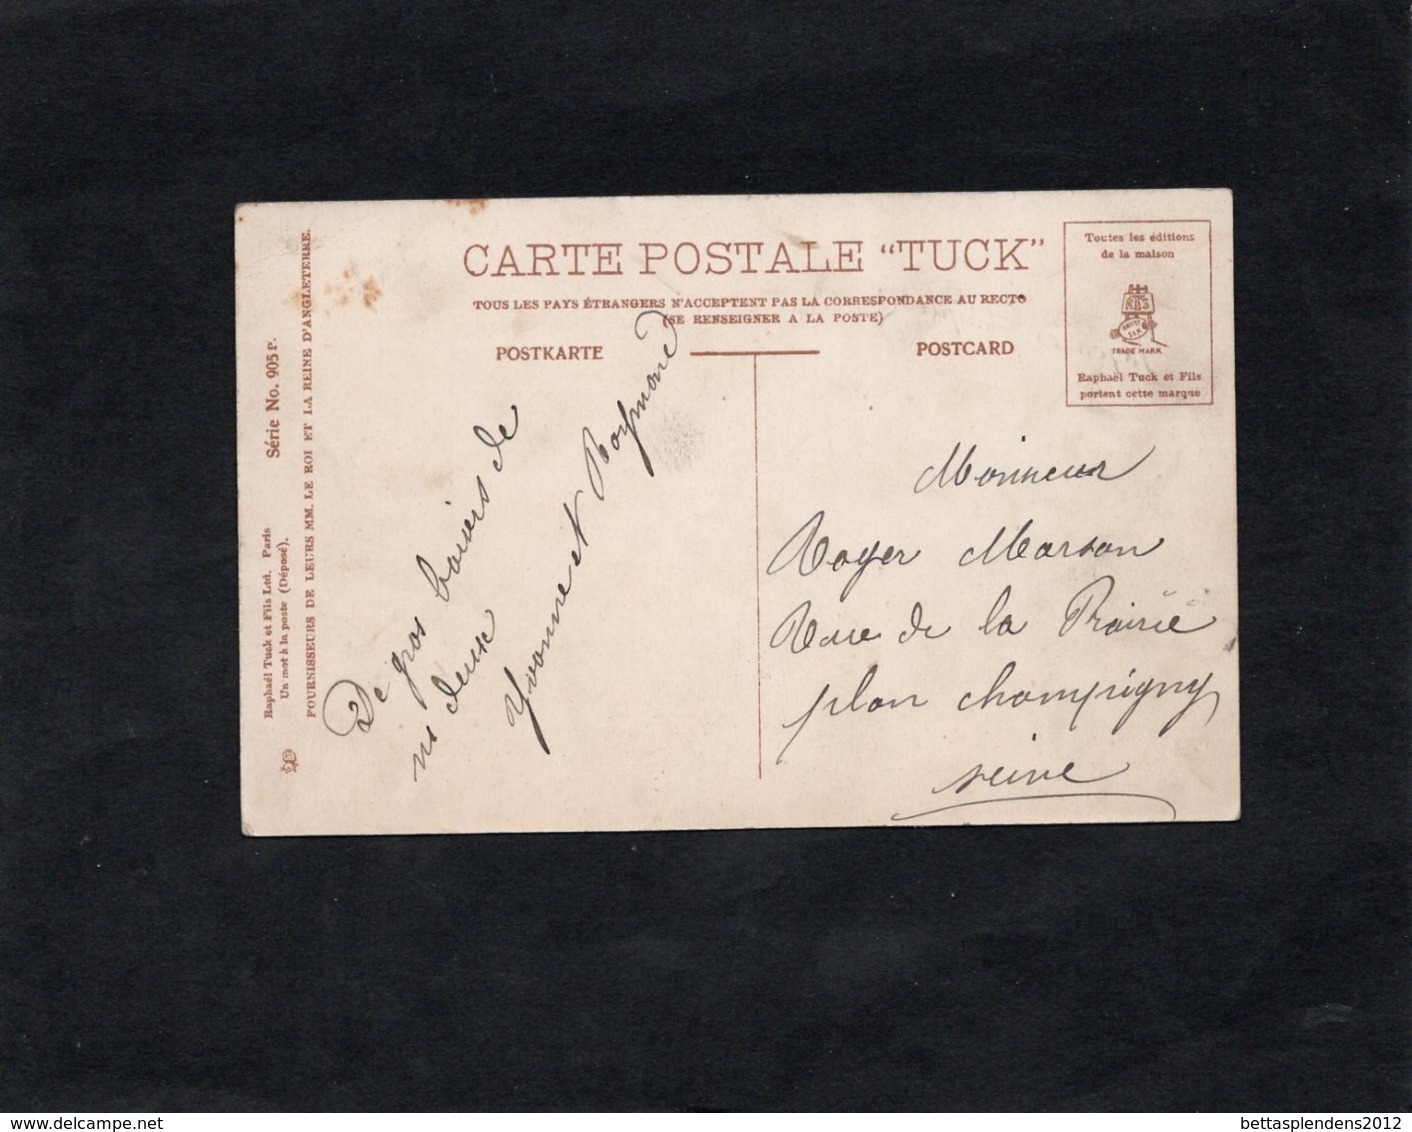 CARTE POSTALE “TUCK”
TOUS LES PAYS ÉTRANGERS N'ACCEPTENT PAS LA CORRESPONDANCE AU RECTO
(SE RENSEIGNER A LA POSTE)
POSTKARTE
POSTCARD
Toutes les éditions
de la maison
TRADE MARK
Raphaël Tuck et Fils
portent cette marque
Raphaël Tuck et Fils Ltd. Paris
Série No. 905 P.
Un mot à la poste (Déposé).
FOURNISSEURS DE LEURS MM. LE ROI ET LA REINE D'ANGLETERRE.
De gros baisers de
deux
Yvonne et Raymond
Monsieur
Roger Marson
Rue de la Prairie
plan champigny
seine
bettasplendens2012